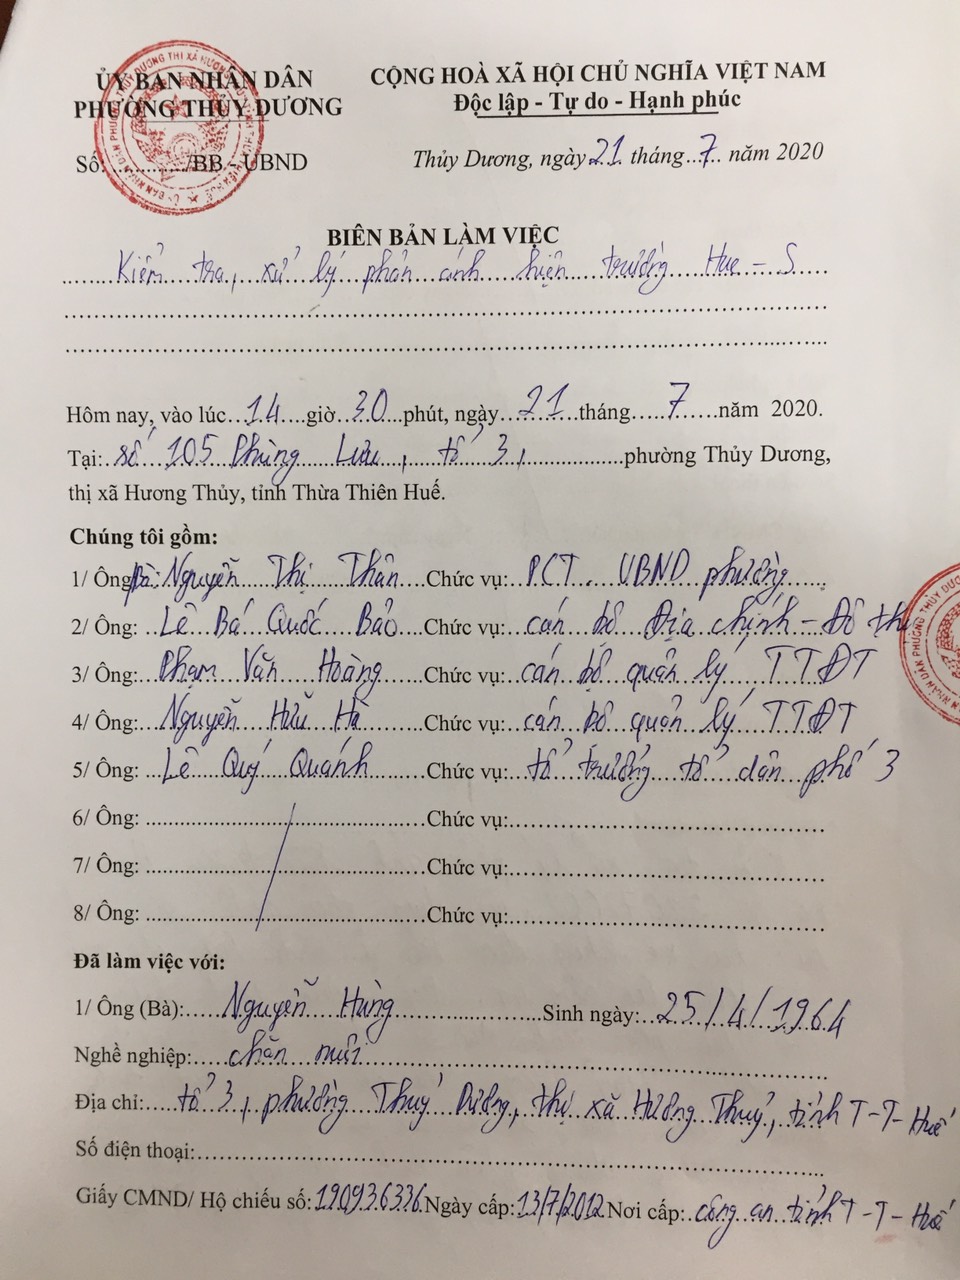 ỦY BAN NHÂN DÂN
PHƯỜNG THỦY DƯƠNG
Số:............../BB - UBND
CỘNG HOÀ XÃ HỘI CHỦ NGHĨA VIỆT NAM
Độc lập - Tự do - Hạnh phúc
Thủy Dương, ngày 21 tháng 7 năm 2020
BIÊN BẢN LÀM VIỆC
Kiểm tra, xử lý phản ánh hiện trường Hue - S
Hôm nay, vào lúc 14 giờ 30 phút, ngày 21 tháng 7 năm 2020.
Tại: số 105 Phùng Lưu, tổ 3, phường Thủy Dương,
thị xã Hương Thủy, tỉnh Thừa Thiên Huế.
Chúng tôi gồm:
1/ Ông Bà: Nguyễn Thị Thân Chức vụ: PCT UBND phường
2/ Ông: Lê Bá Quốc Bảo Chức vụ: cán bộ Địa chính - Đô thị
3/ Ông: Phạm Văn Hoàng Chức vụ: cán bộ quản lý TTĐT
4/ Ông: Nguyễn Hữu Hà Chức vụ: cán bộ quản lý TTĐT
5/ Ông: Lê Quý Quánh Chức vụ: tổ trưởng tổ dân phố 3
6/ Ông: Chức vụ:
7/ Ông: Chức vụ:
8/ Ông: Chức vụ:
Đã làm việc với:
1/ Ông (Bà): Nguyễn Hùng Sinh ngày: 25/4/1964
Nghề nghiệp: chăn nuôi
Địa chỉ: tổ 3, phường Thuỷ Dương, thị xã Hương Thuỷ, tỉnh T-T-Huế
Số điện thoại:
Giấy CMND/ Hộ chiếu số: 190936336 Ngày cấp: 13/7/2012 Nơi cấp: công an tỉnh T-T-Huế